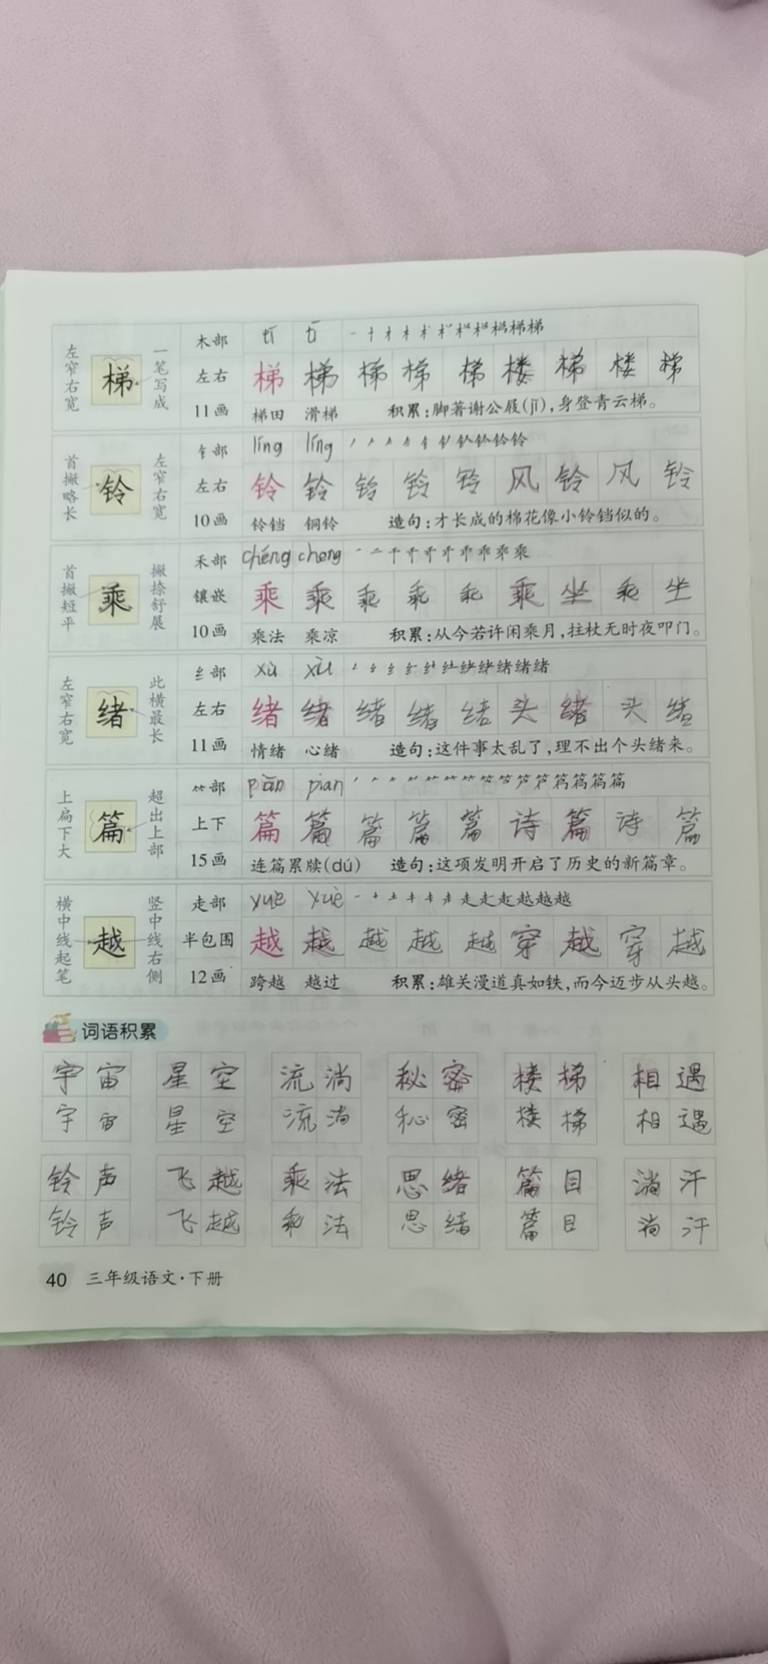 左窄右宽 梯 一笔写成 木部 tī tī
左右 梯 梯 梯 梯 梯 楼 梯 楼 梯
11画 梯田 滑梯 积累:脚著谢公屐(jī),身登青云梯。
首撇略长 铃 左窄右宽 钅部 líng líng
左右 铃 铃 铃 铃 铃 风 铃 风 铃
10画 铃铛 铜铃 造句:才长成的棉花像小铃铛似的。
首撇短平 乘 撇捺舒展 禾部 chéng cheng
镶嵌 乘 乘 乘 乘 乘 乘 坐 乘 坐
10画 乘法 乘凉 积累:从今若许闲乘月,拄杖无时夜叩门。
左窄右宽 绪 此横最长 纟部 xù xù
左右 绪 绪 绪 绪 绪 头 绪 头 绪
11画 情绪 心绪 造句:这件事太乱了,理不出个头绪来。
上扁下大 篇 超出上部 ⺮部 piān pian
上下 篇 篇 篇 篇 篇 诗 篇 诗 篇
15画 连篇累牍(dú) 造句:这项发明开启了历史的新篇章。
横中线起笔 越 竖中线右侧 走部 yuè yuè
半包围 越 越 越 越 越 穿 越 穿 越
12画 跨越 越过 积累:雄关漫道真如铁,而今迈步从头越。
词语积累
宇宙 星空 流淌 秘密 楼梯 相遇
宇宙 星空 流淌 秘密 楼梯 相遇
铃声 飞越 乘法 思绪 篇目 淌汗
铃声 飞越 乘法 思绪 篇目 淌汗
40 三年级语文·下册